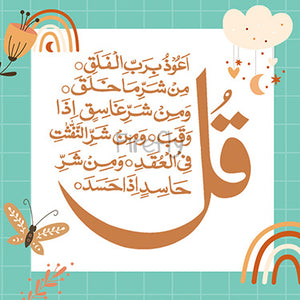 قُل
اَعُوْذُ بِرَبِّ الْفَلَقِ ۝
مِنْ شَرِّ مَا خَلَقَ ۝
وَمِنْ شَرِّ غَاسِقٍ اِذَا
وَقَبَ ۝ وَمِنْ شَرِّ النَّفّٰثٰتِ
فِي الْعُقَدِ ۝ وَمِنْ شَرِّ
حَاسِدٍ اِذَا حَسَدَ ۝